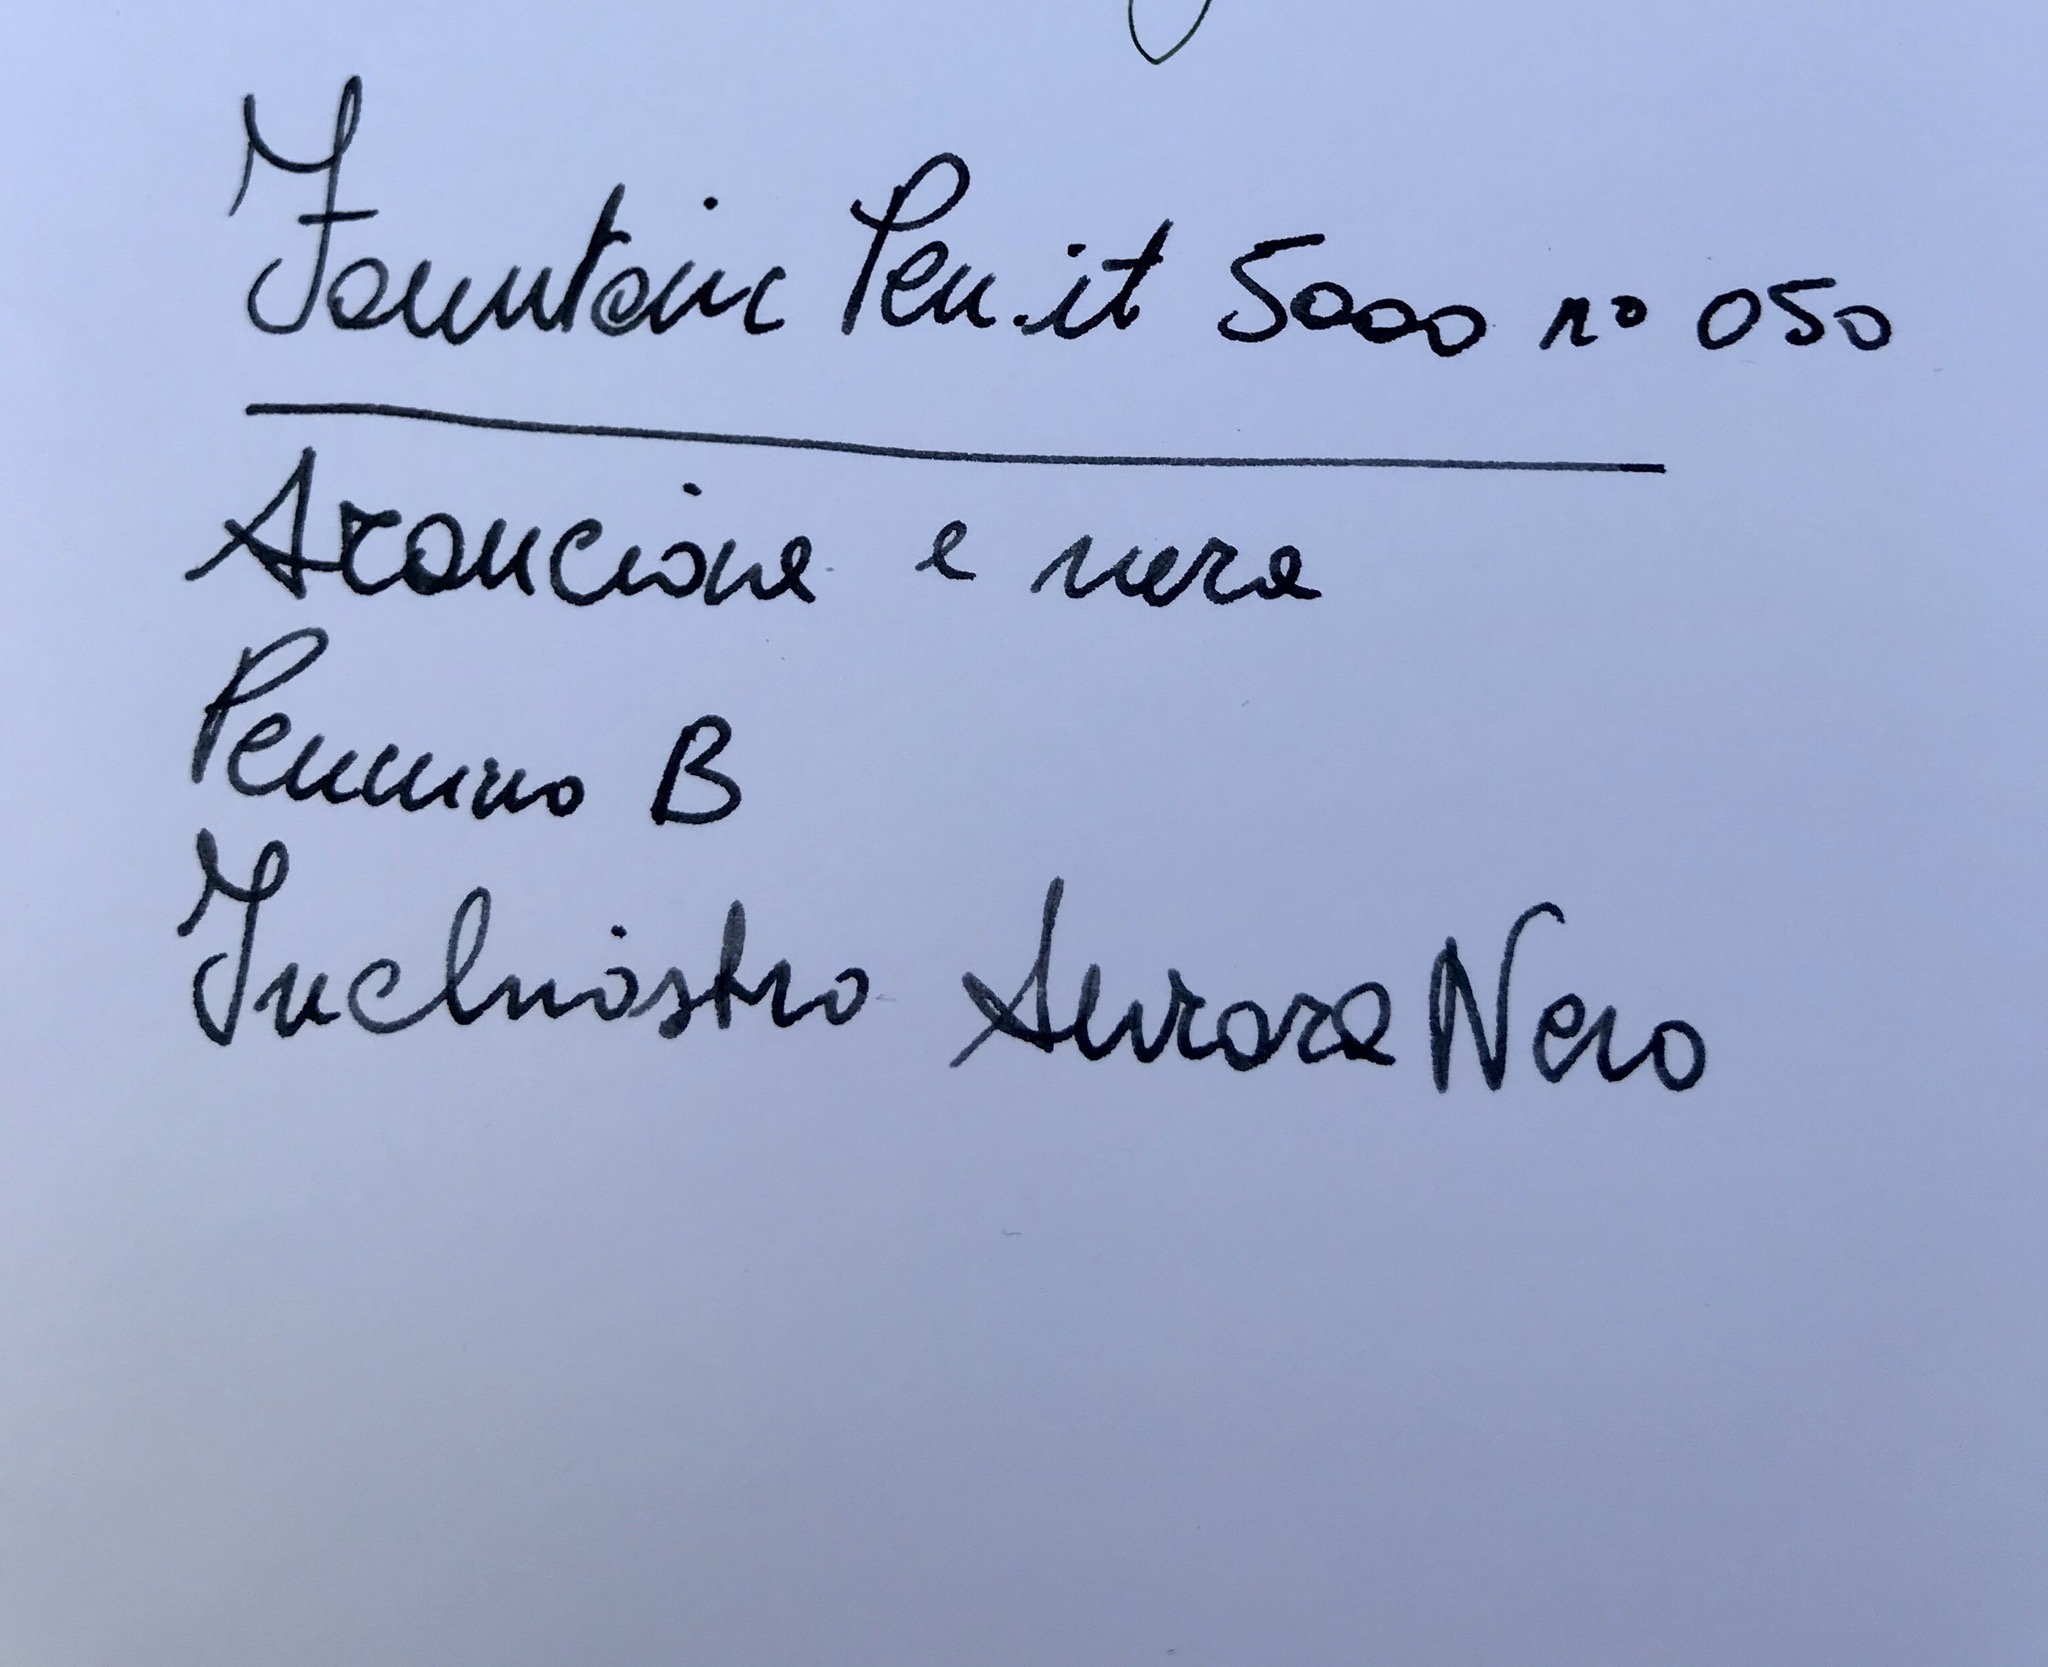 Fountain Pen.it 5000 no 050
Arancione e nera
Pennino B
Inchiostro Aurora Nero